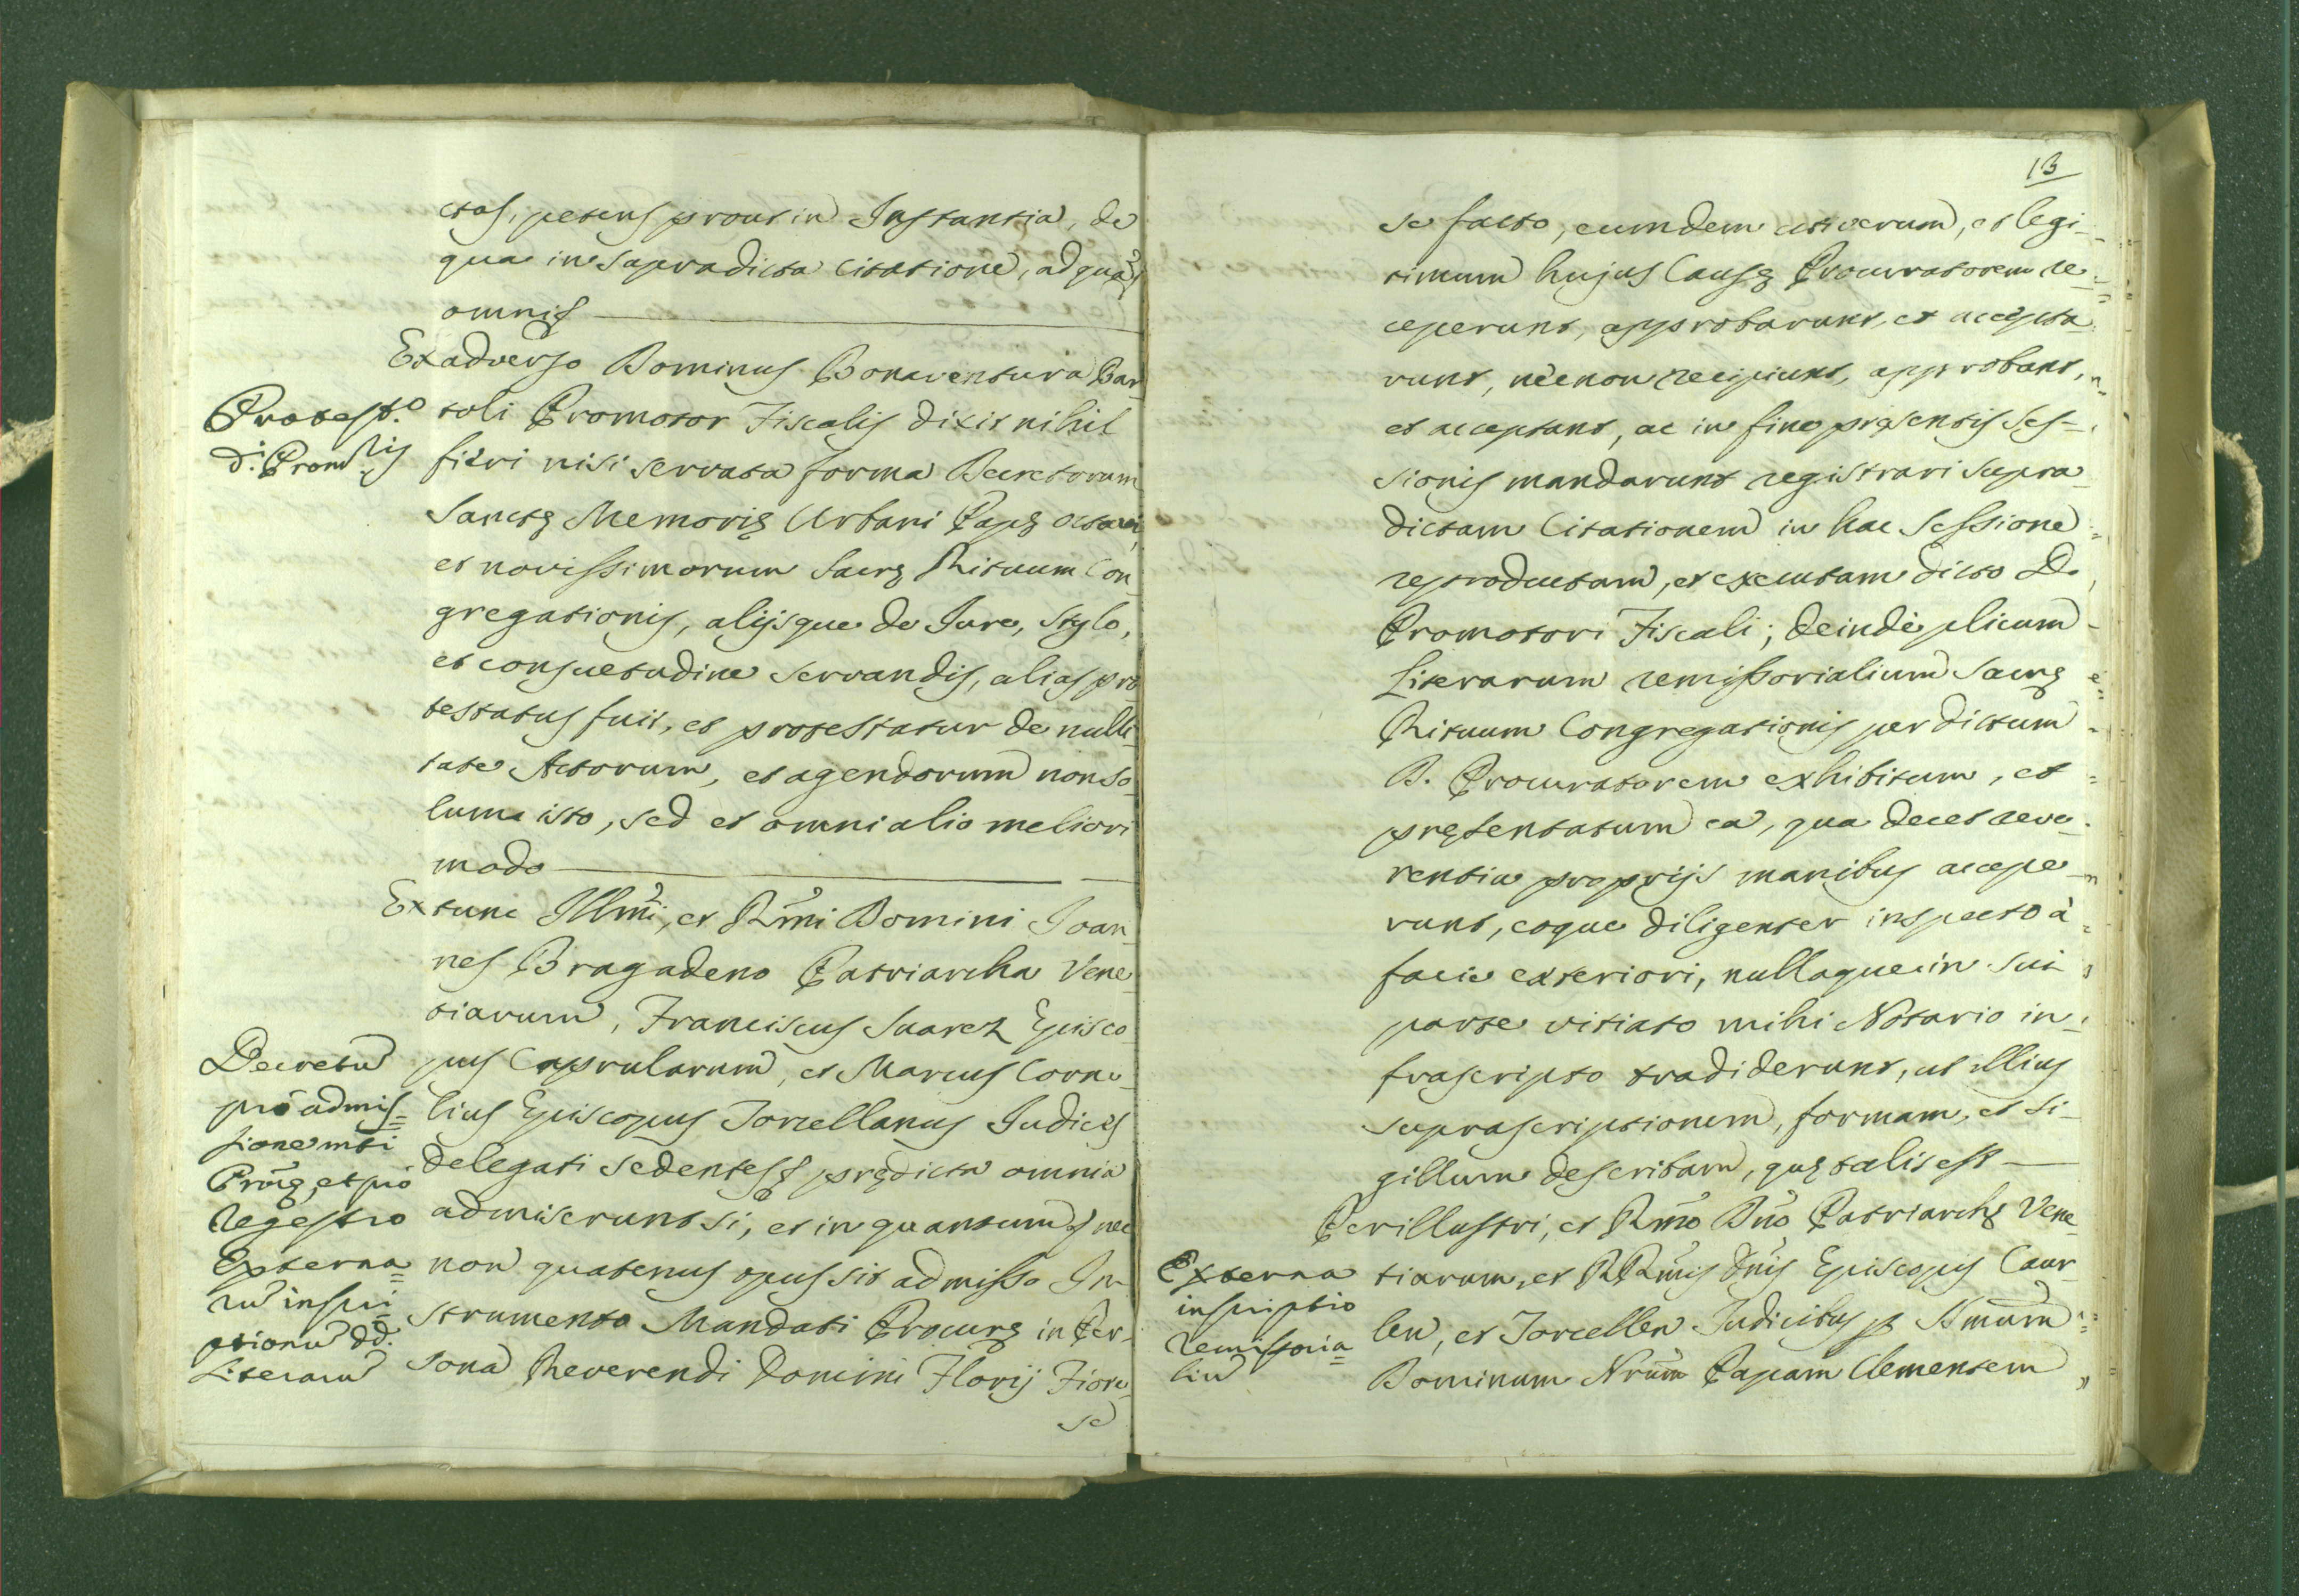 ctas, petens prout in Instantia, de
qua in supradicta Citatione, ad quã
omnis
Ex adverso Dominus Bonaventura Bar
Protest.º
d. Prom
toli Promotor Fiscalis dixit nihil
fieri nisi servata forma Decretorum
Sanctę Memorię Urbani Papę octavi,
et novissimorum Sacrę Rituum Con
gregationis, alijsque de Iure, Stylo,
et consuetudine servandis, alias pro
testatus fuit, et protestatur de nulli
tate Actorum, et agendorum non so
lum isto, sed et omni alio meliori
modo
Ex tunc Illm̃i, et Rm̃i Domini Ioan
nes Bragadeno Patriarcha Vene
tiarum, Franciscus Suarez Episco
pus Caprularum, et Marcus Corne
lius Episcopus Torcellanus Iudices
delegati sedentes prędicta omnia
admiserunt si, et in quantum nec
non quatenus opus sit admisso In
strumento Mandati Procurę in Per
sona Reverendi Domini Florij Fiore
se
Decretũ
pro admis=
sione mti
Procę, et pro
regestro
Externa=
rũ inscri=
ptionũ dd.
Literarũ
13
se facto, eumdem uti verum, et legi
timum hujus Causę Procuratorem re
ceperunt, approbarunt, et accepta
runt, necnon recipiunt, approbant,
et acceptant, ac in fine pręsentis Ses-
sionis mandarunt registrari supra
dictam Citationem in hac Sessione
reproductam, et executam dicto D.
Promotori Fiscali; deindè plicum
Literarum remissorialium Sacrę
Rituum Congregationis per dictum
D. Procuratorem exhibitum, et
pręsentatum ea, qua decet reve
rentia proprijs manibus accepe
runt, eoque diligenter inspecto à
facie exteriori, nullaque in sui
parte vitiato mihi Notario in
frascripto tradiderunt, ut illius
suprascriptionem, formam, et si
gillum describam, quę talis est
Perillustri, et Rm̃o Dño Patriarchę Vene
tiarum, et RRm̃is Dñis Episcopis Caur
len, et Torcellen Iudicibus p Smũm
Dominum Nrũm Papam Clementem
Externa
inscriptio
remissoria=
liũ